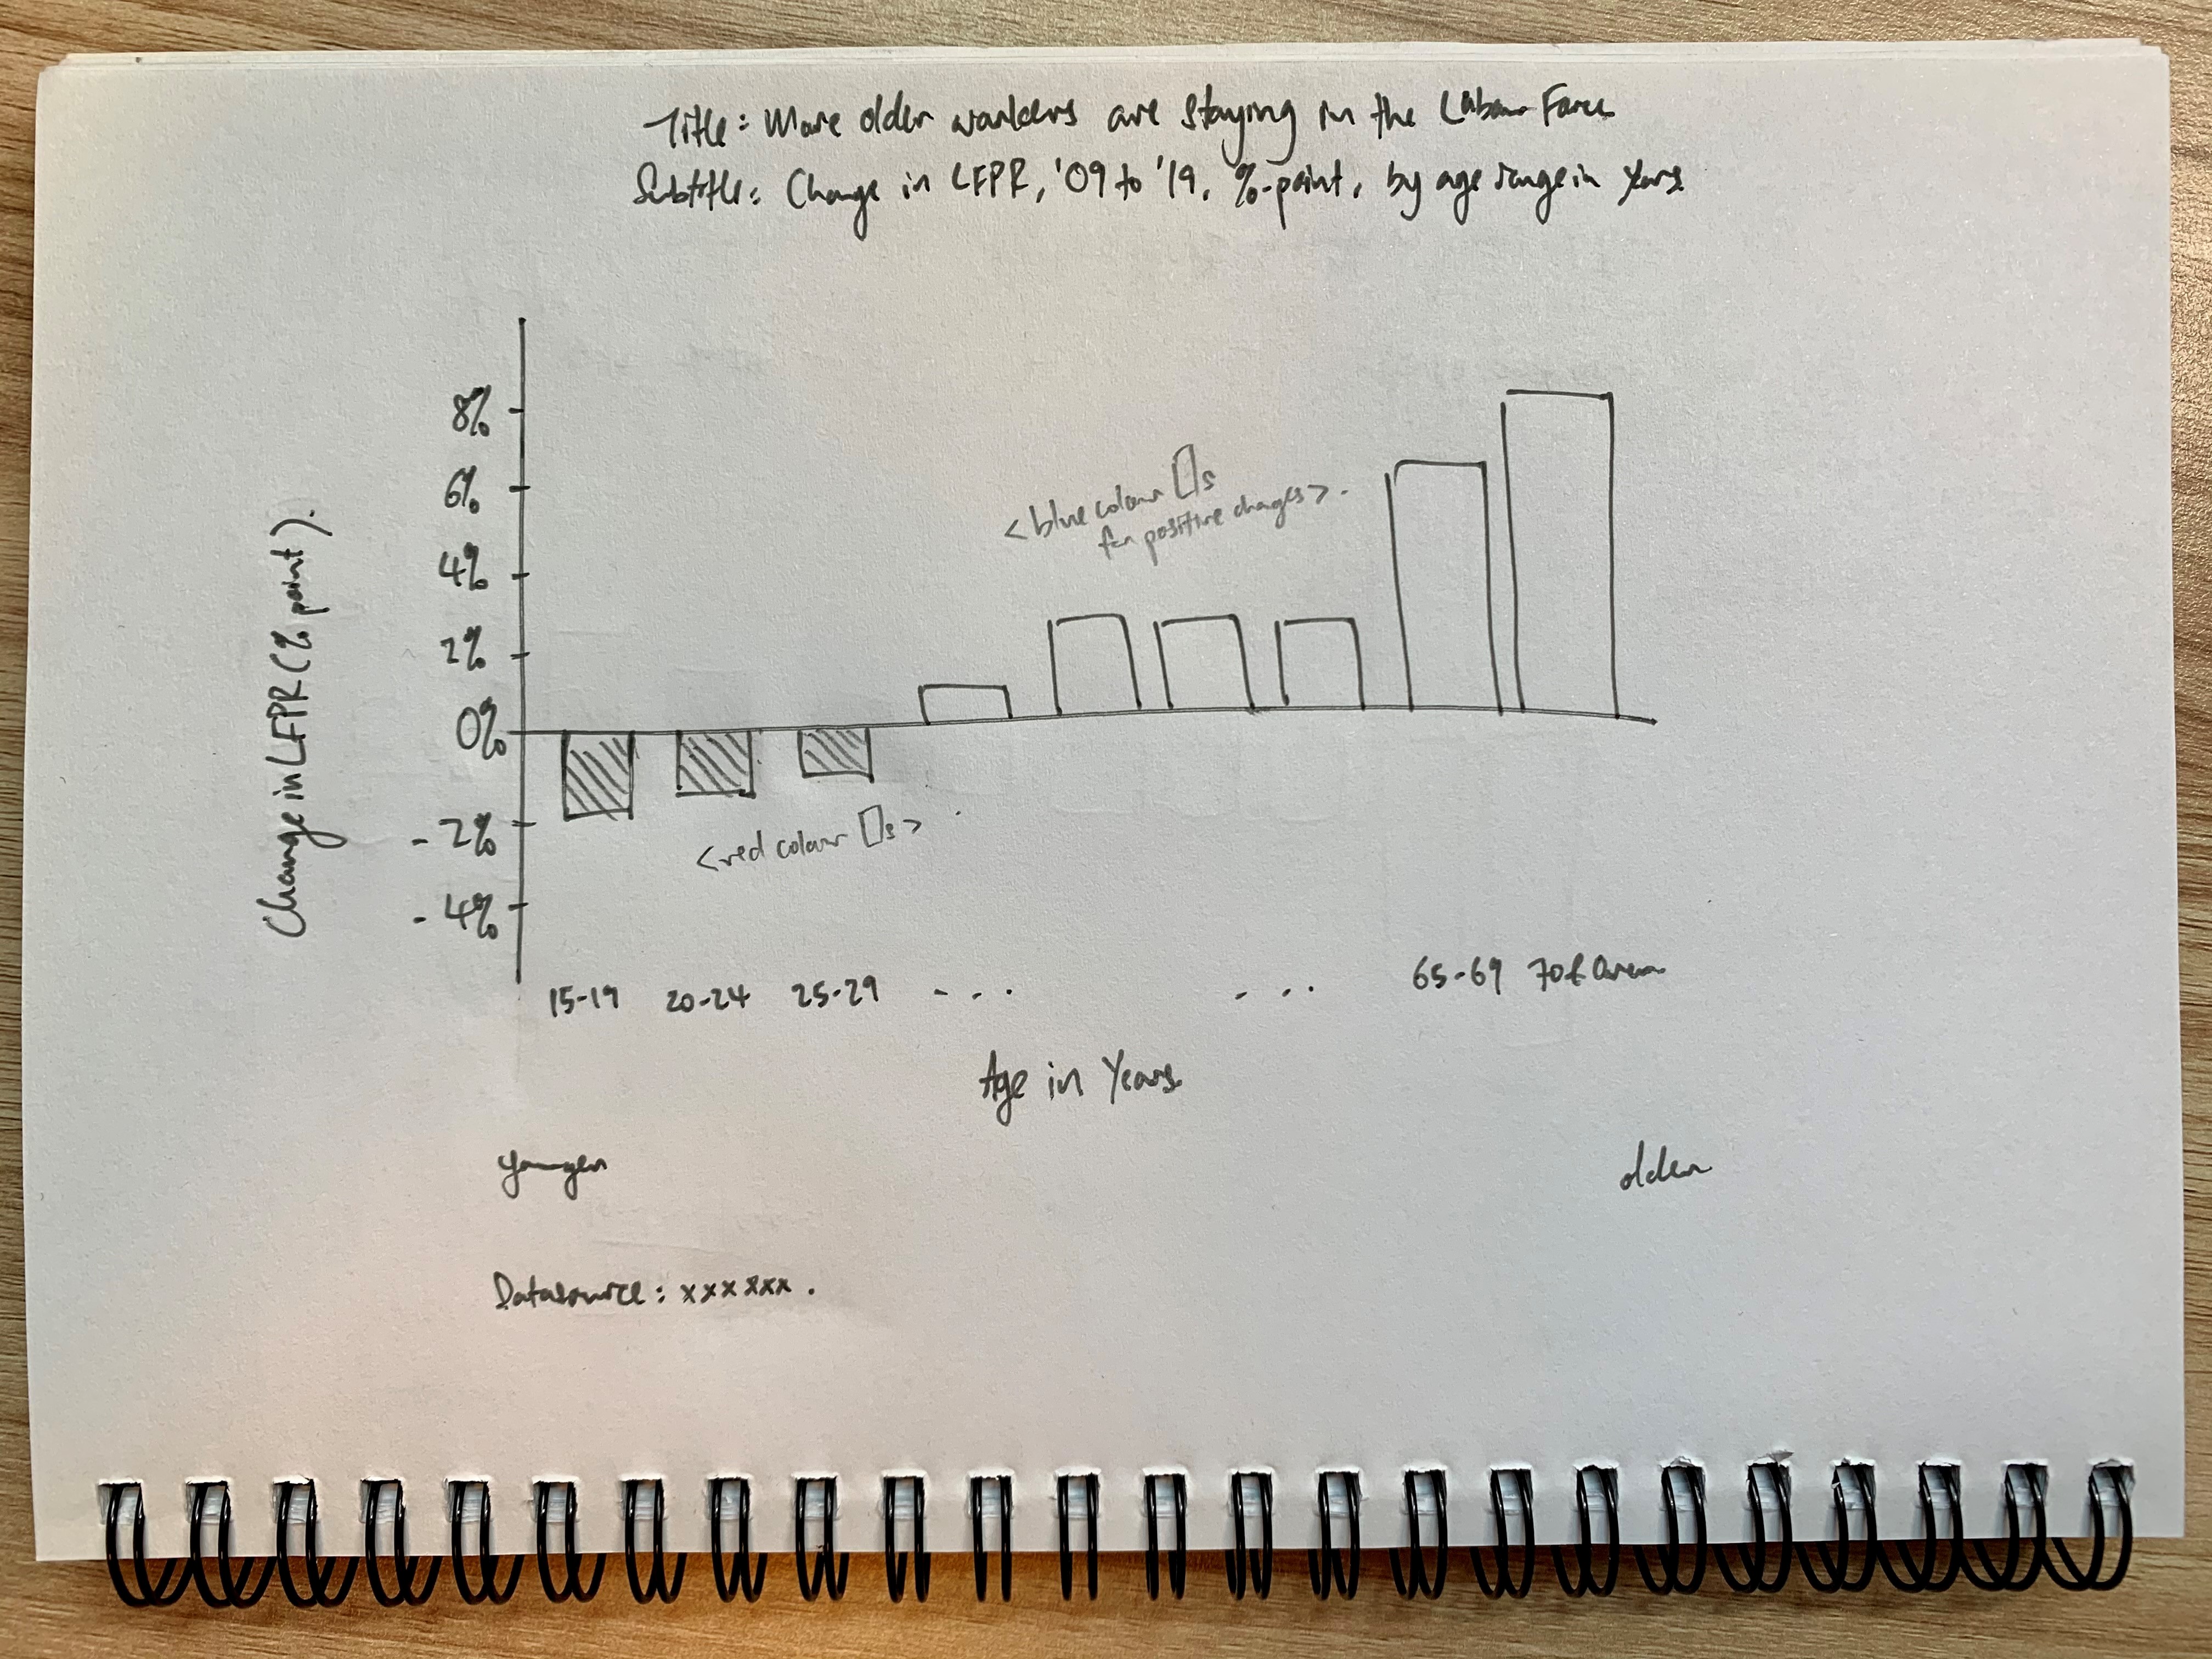 Title: More older workers are staying in the Labour Force
Subtitle: Change in LFPR, '09 to '19, %-point, by age range in years
8%
6%
4%
2%
0%
- 2%
- 4%
Change in LFPR (% point).
<blue colour s
for positive changes>.
<red colour s>
15-19 20-24 25-29 ... ... 65-69 70 & Over
Age in Years
younger older
Datasource: xxxxxx.